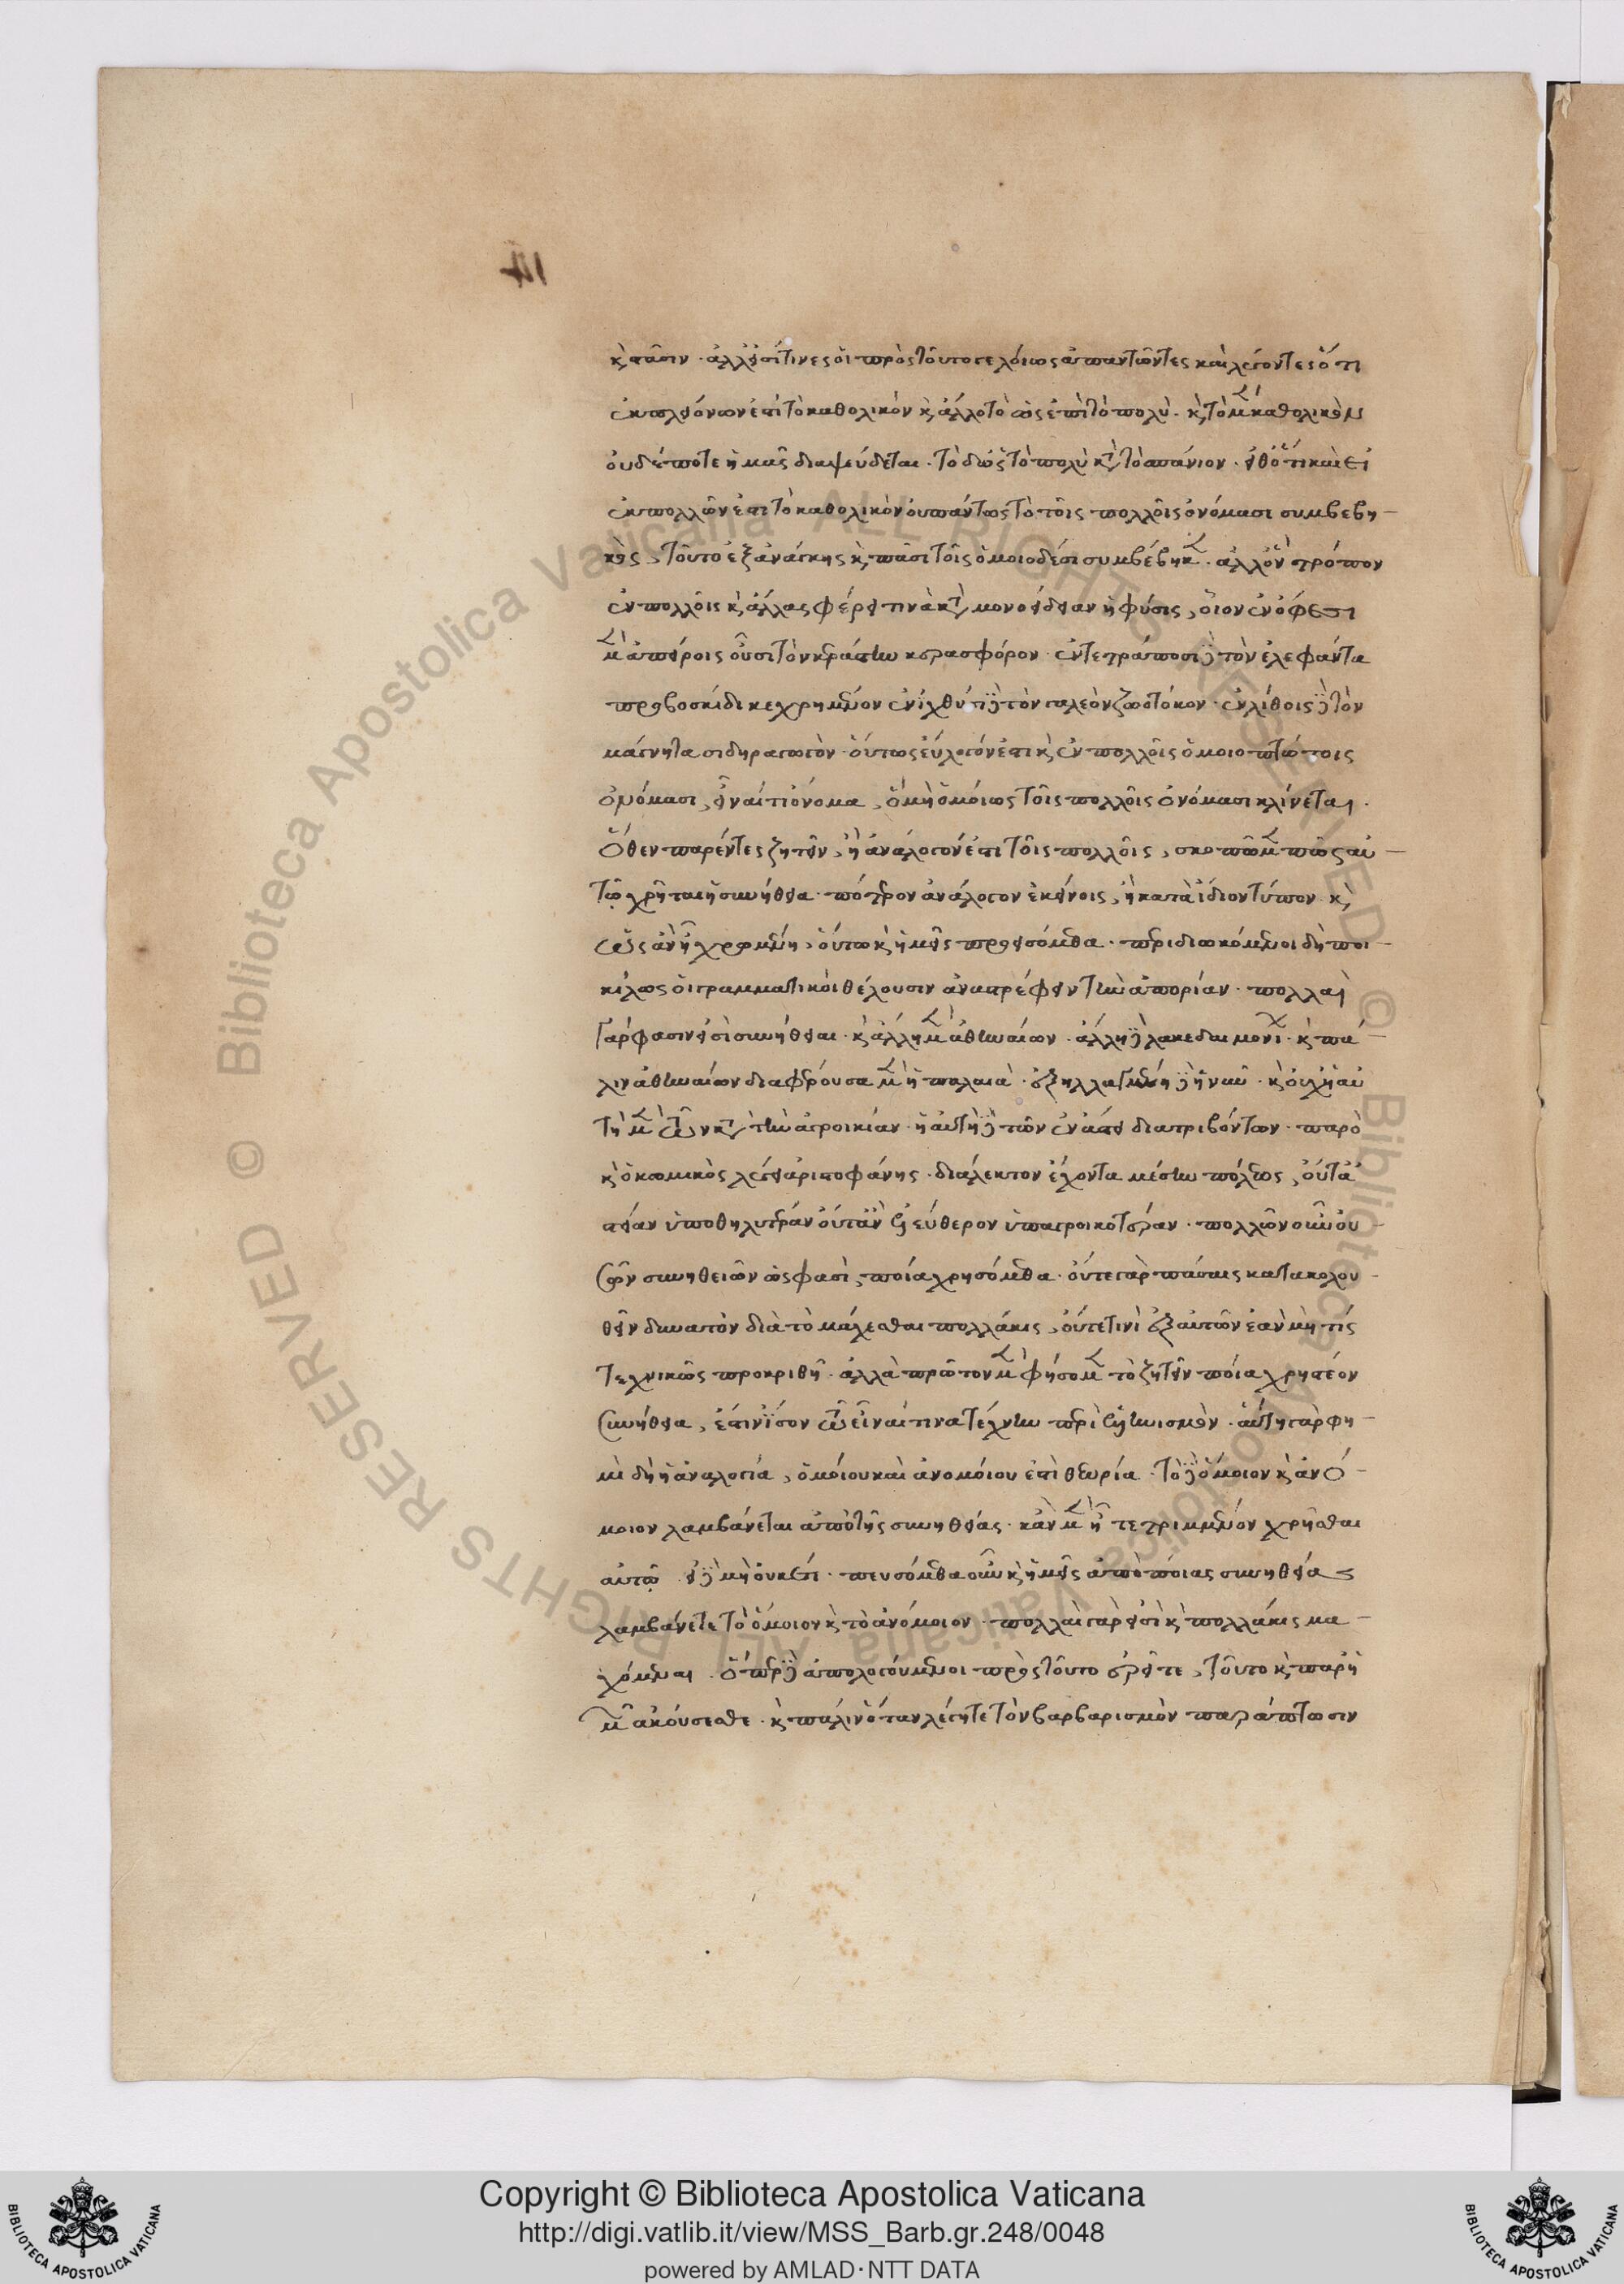 14
ϗ πᾶσιν. ἀλλ' εἰσί τινες οἱ πρὸς τοῦτο γελοίως ἀπαντῶντες καὶ λέγοντες ὅτι
ἐκ πλειόνων ἐστὶ τὸ καθολικὸν ϗ ἄλλο τὸ ὡς ἐπὶ τὸ πολύ. ϗ τὸ μὲν καθολικὸν
οὐδέποτε ἡμᾶς διαψεύδεται. τὸ δὲ ὡς τὸ πολὺ κατὰ τὸ σπάνιον. εἶθ' ὅτι καὶ εἰ
ἐκ πολλῶν ἐστὶ τὸ καθολικὸν οὐ πάντως τὸ τοῖς πολλοῖς ὀνόμασι συμβεβη-
κὸς, τοῦτο ἐξ ἀνάγκης ϗ πᾶσι τοῖς ὁμοιοδέσι συμβέβηκεν. ἀλλ' ὃν τρόπον
ἐν πολλοῖς ϗ ἄλλας φέρει τινὰ κατὰ μονοείδειαν ἡ φύσις, οἷον ἐν ὄφεσι
μὲν ἀπείροις οὖσι τὸν κεράστην κερασφόρον. ἐν τετράποσι δὲ τὸν ἐλεφάντα
προβοσκίδι κεχρημένον ἐν ἰχθύσι δὲ τὸν γαλεὸν ζωοτόκον. ἐν λίθοις δὲ τὸν
μάγνητα σιδηραγωγὸν. οὕτως εὔλογόν ἐστι ϗ ἐν πολλοῖς ὁμοιοπτώτοις
ὀνόμασι, εἶναί τι ὄνομα, ὃ μὴ ὁμοίως τοῖς πολλοῖς ὀνόμασι κλίνεται.
Ὅθεν παρέντες ζητεῖν, εἰ ἀνάλογόν ἐστι τοῖς πολλοῖς, σκοπῶμεν πῶς αὐ-
τῷ χρῆται ἡ συνήθεια. πότερον ἀνάλογον ἐκείνοις, ἢ κατὰ ἴδιον τύπον. ϗ
ὡς ἂν ᾖ χρωμένη, οὕτω ϗ ἡμεῖς προησόμεθα. περιδιωκόμενοι δὴ ποι-
κίλως οἱ γραμματικοὶ θέλουσιν ἀναστρέφειν τὴν ἀπορίαν. πολλαὶ
γάρ φασιν εἰσὶ συνήθειαι. ϗ ἄλλη μὲν ἀθηναίων. ἄλλη δὲ λακεδαιμονίων. ϗ πά-
λιν ἀθηναίων διαφέρουσα μὲν ἡ παλαιὰ. ἐξηλλαγμένη δὲ ἡ νῦν. ϗ οὐχ ἡ αὐ-
τὴ μὲν τῶν κατὰ τὴν ἀγροικίαν. ἡ αὐτὴ δὲ τῶν ἐν ἄστει διατριβόντων. παρὸ
ϗ ὁ κωμικὸς λέγει ἀριστοφάνης. διάλεκτον ἔχοντα μέσην πόλεως, οὔτ' ἀ-
στείαν ὑποθηλυτέραν οὔτ' ἀνελεύθερον ὑπαγροικοτέραν. πολλῶν οὖν οὐ-
σῶν συνηθειῶν ὡς φασὶ, ποίᾳ χρησόμεθα. οὔτε γὰρ πάσαις κατακολου-
θεῖν δυνατὸν διὰ τὸ μάχεσθαι πολλάκις, οὔτε τινὶ ἐξ αὐτῶν ἐὰν μή τις
τεχνικῶς προκριθῇ. ἀλλὰ πρῶτον μὲν φήσομεν τὸ ζητεῖν ποίᾳ χρηστέον
συνήθεια, ἐστὶν ἴσον τῷ εἶναί τινα τέχνην περὶ ἑλληνισμὸν. αὕτη γὰρ φη-
μὶ δὴ ἡ ἀναλογία, ὁμοίου καὶ ἀνομοίου ἐστὶ θεωρία. τὸ δὲ ὅμοιον ϗ ἀνό-
μοιον λαμβάνεται ἀπὸ τῆς συνηθείας. κἂν μὲν ᾖ τετριμμένον χρῆσθαι
αὐτῷ. εἰ δὲ μὴ οὐκέτι. πευσόμεθα οὖν ϗ ἡμεῖς ἀπὸ ποίας συνηθείας
λαμβάνετε τὸ ὅμοιον ϗ τὸ ἀνόμοιον. πολλαὶ γὰρ εἰσὶ ϗ πολλάκις μα-
χόμεναι. ὅπερ δὲ ἀπολογούμενοι πρὸς τοῦτο ἐρεῖτε, τοῦτο ϗ παρ' ἡ-
μῶν ἀκούσεσθε. ϗ πάλιν ὅταν λέγητε τὸν βαρβαρισμὸν παράπτωσιν
© Biblioteca Apostolica Vaticana ALL RIGHTS RESERVED © Biblioteca Apostolica Vaticana ALL RIGHTS RESERVED
BIBLIOTECA APOSTOLICA VATICANA
Copyright © Biblioteca Apostolica Vaticana
http://digi.vatlib.it/view/MSS_Barb.gr.248/0048
powered by AMLAD·NTT DATA
BIBLIOTECA APOSTOLICA VATICANA